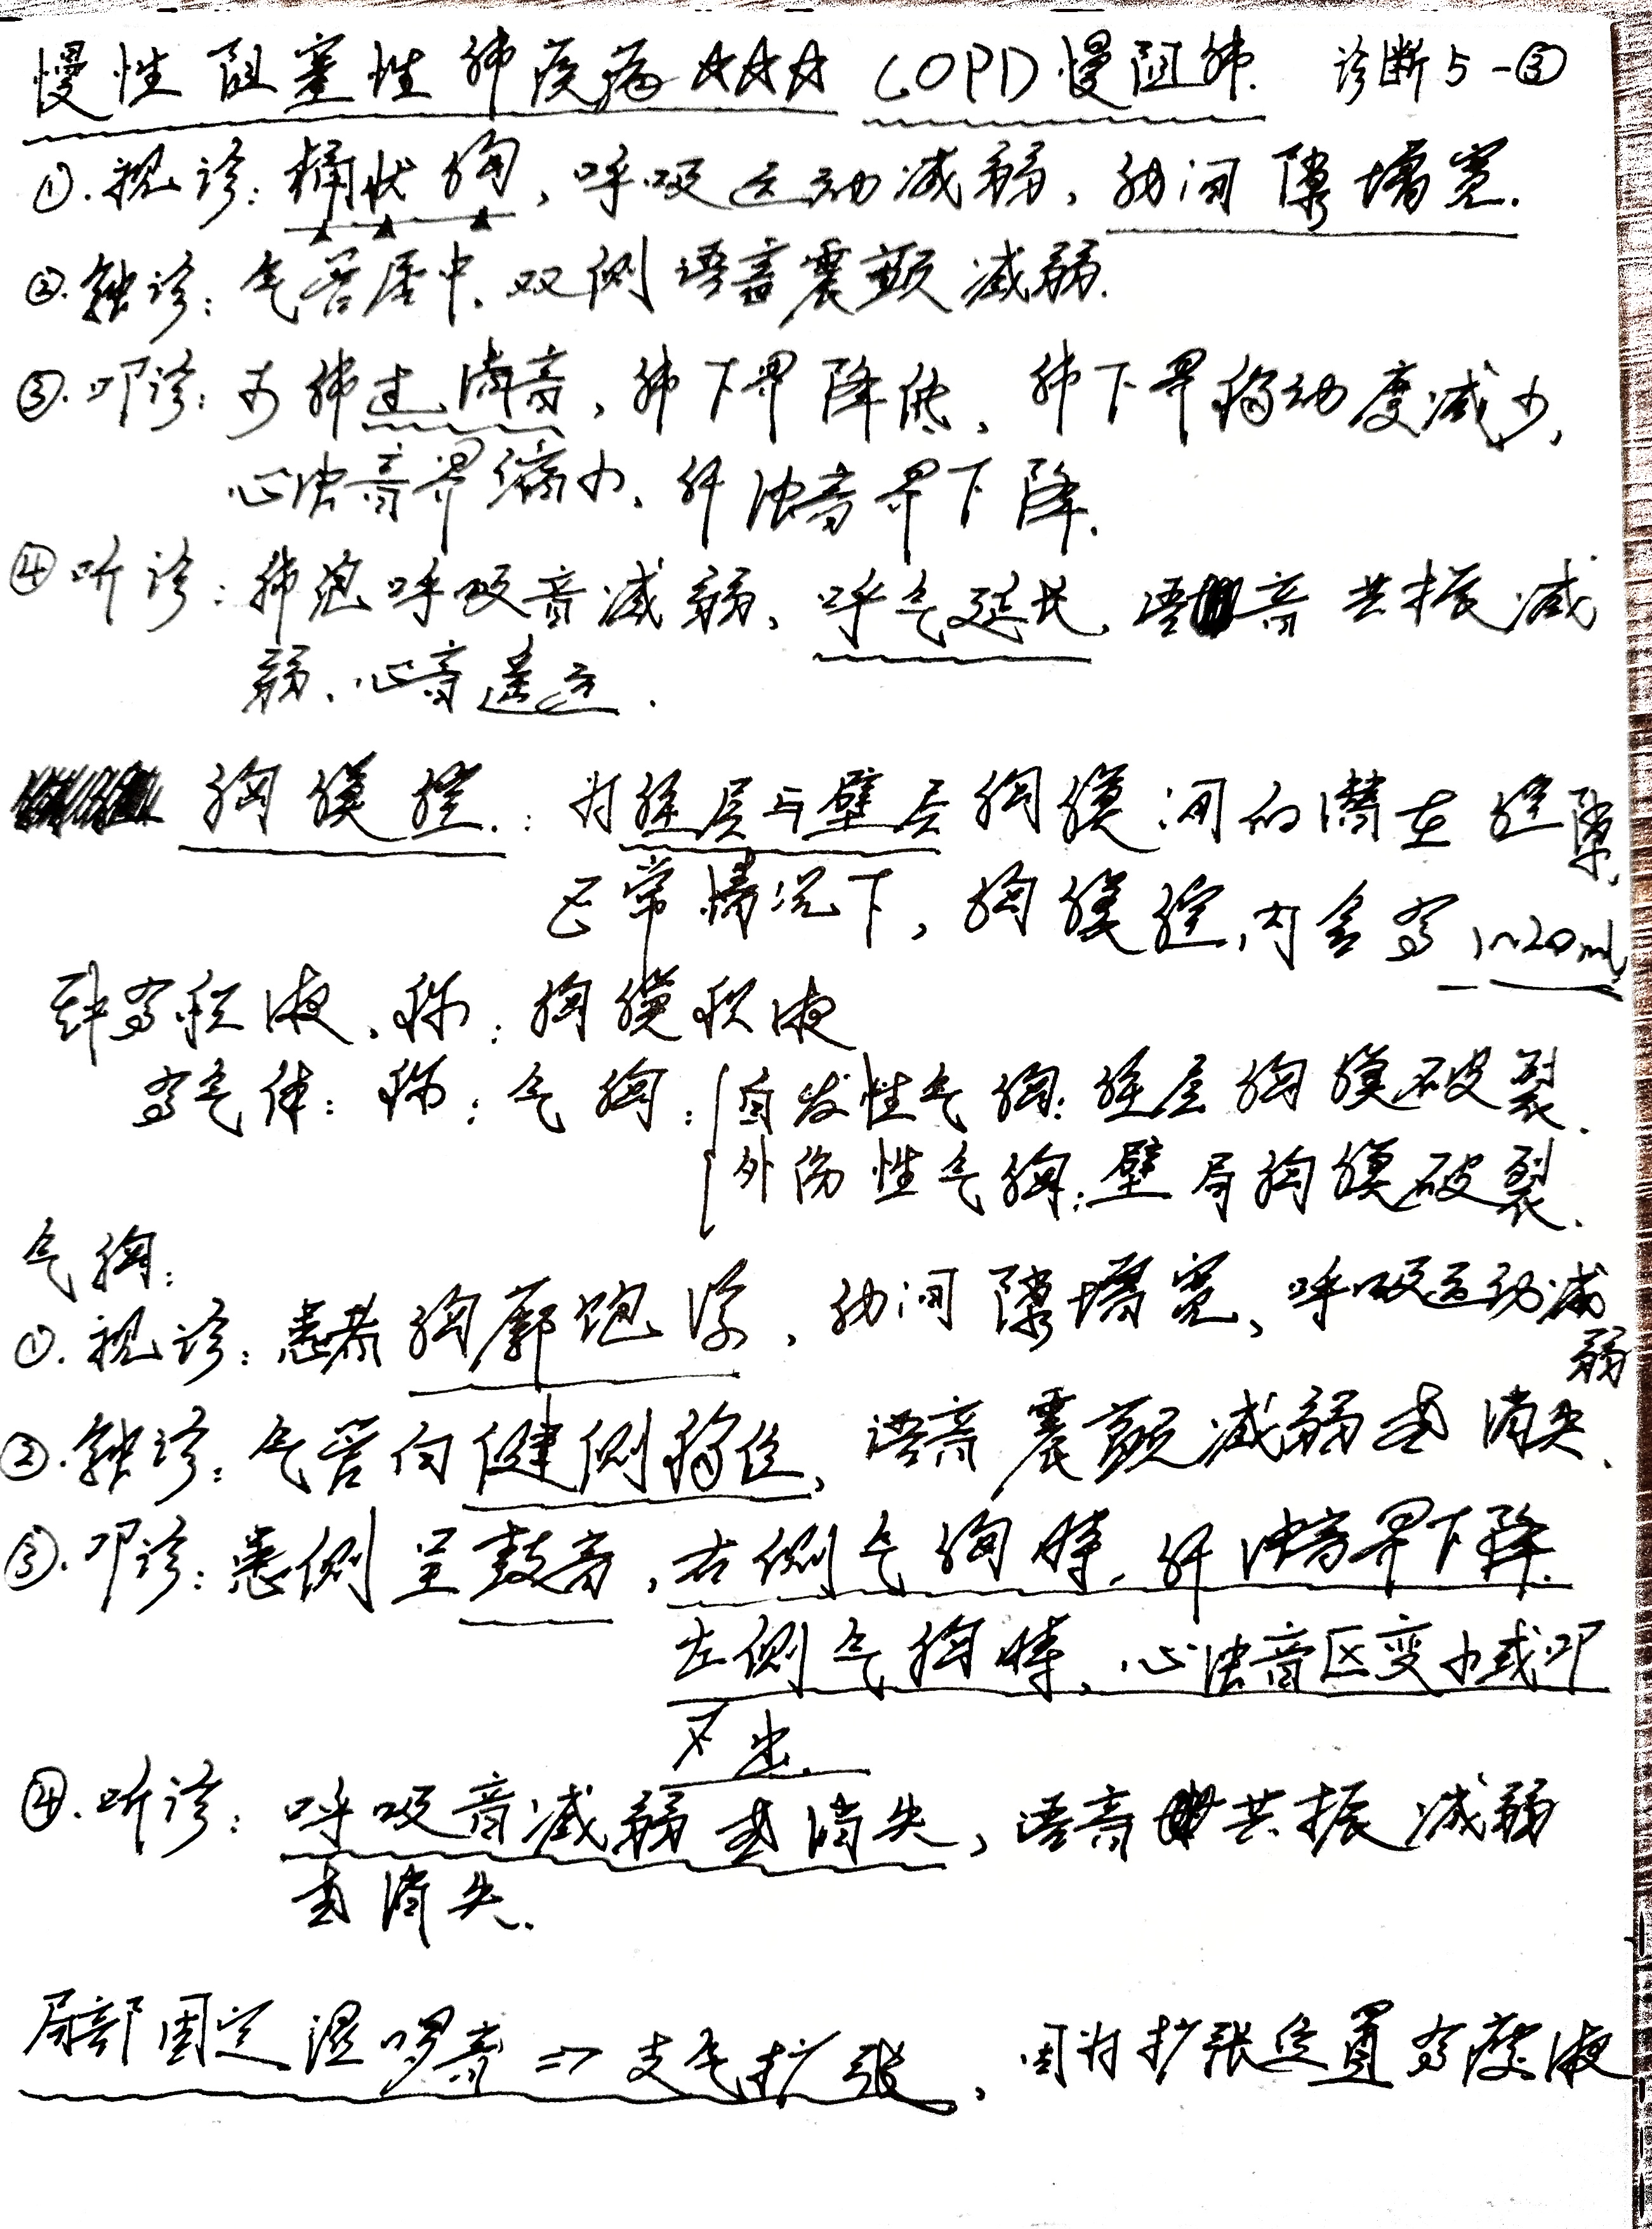 慢性阻塞性肺疾病☆☆☆ COPD慢阻肺. 诊断5-③
①.视诊:桶状胸,呼吸运动减弱,肋间隙增宽.
②.触诊:气管居中、双侧语音震颤减弱.
③.叩诊:双肺过清音,肺下界降低、肺下界移动度减少、
心浊音界缩小、肝浊音界下降.
④听诊:肺泡呼吸音减弱、呼气延长、语音共振减
弱、心音遥远.
胸膜腔.:为脏层与壁层胸膜间的潜在腔隙,
正常情况下,胸膜腔内含有1~20ml
有积液、称:胸膜积液
有气体:称:气胸:自发性气胸:脏层胸膜破裂.
外伤性气胸:壁层胸膜破裂.
气胸:
①.视诊:患者胸廓饱满,肋间隙增宽、呼吸运动减
弱
②.触诊:气管向健侧移位、语音震颤减弱或消失、
③.叩诊:患侧呈鼓音,右侧气胸时,肝浊音界下降.
左侧气胸时,心浊音区变小或叩
不出.
④.听诊:呼吸音减弱或消失,语音共振减弱
或消失.
局部固定湿啰音⇒支气扩张,因为扩张位置有痰液